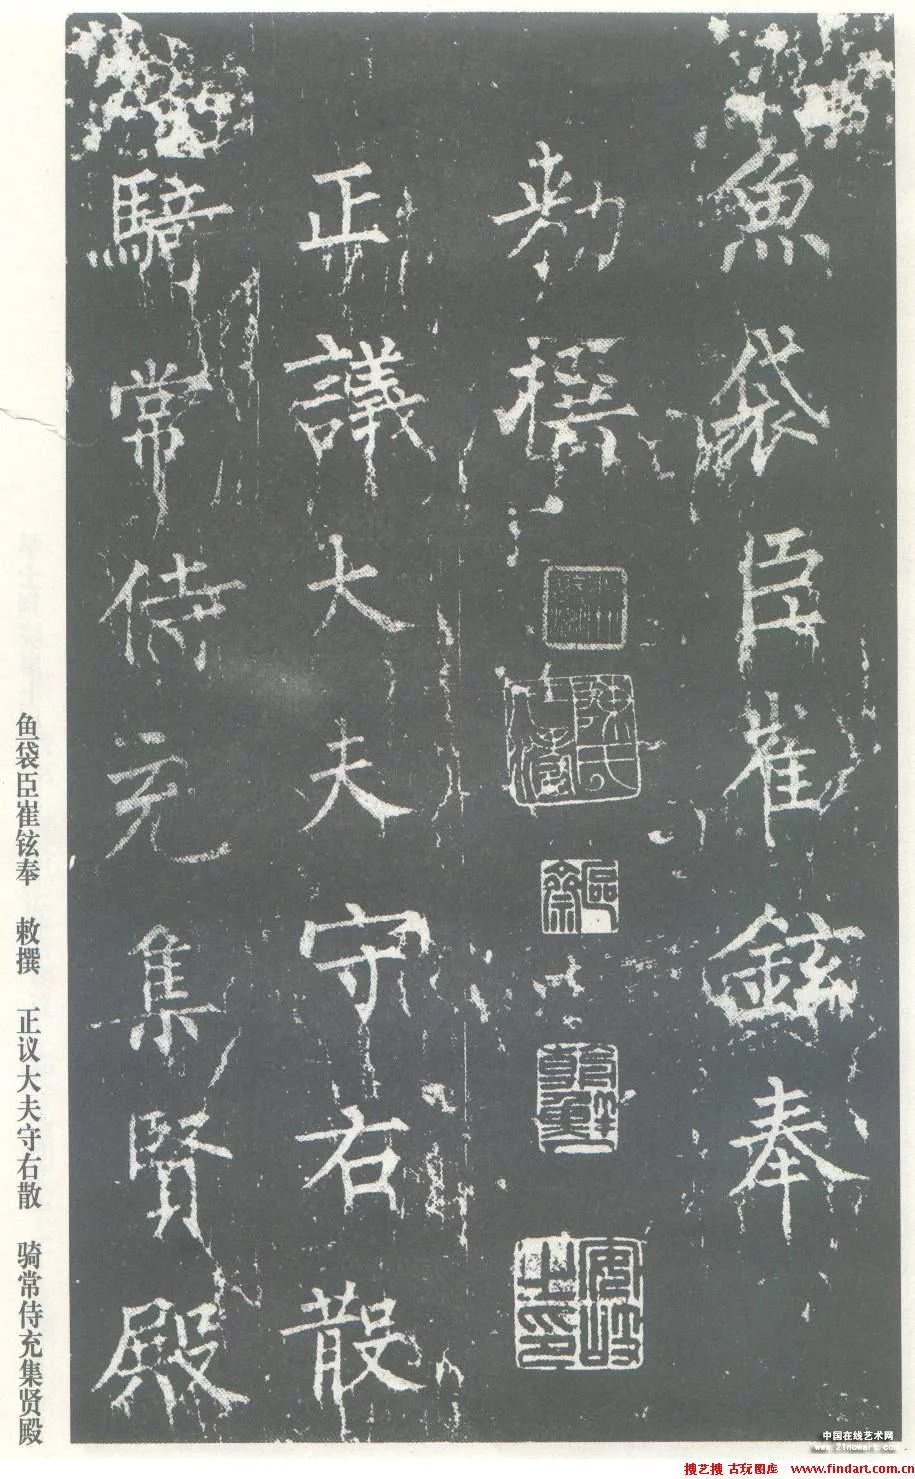 魚袋臣崔鉉奉
敕撰
正議大夫守右散
騎常侍充集賢殿
鱼袋臣崔铉奉 敕撰 正议大夫守右散 骑常侍充集贤殿
中国在线艺术网
www.21nowart.com
搜艺搜 古玩图库 www.findart.com.cn